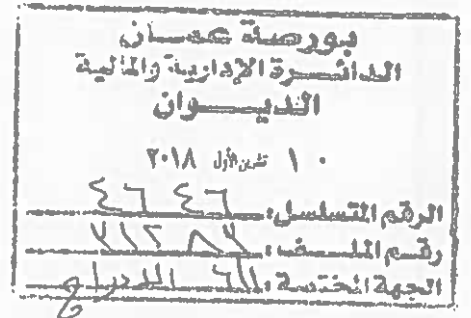 بورصة عمان
الدائرة الإدارية والمالية
الديوان
١٠ تشرين الأول ٢٠١٨
الرقم المتسلسل: ٤٦٤٦
رقم الملف:
الجهة المختصة: الادراج